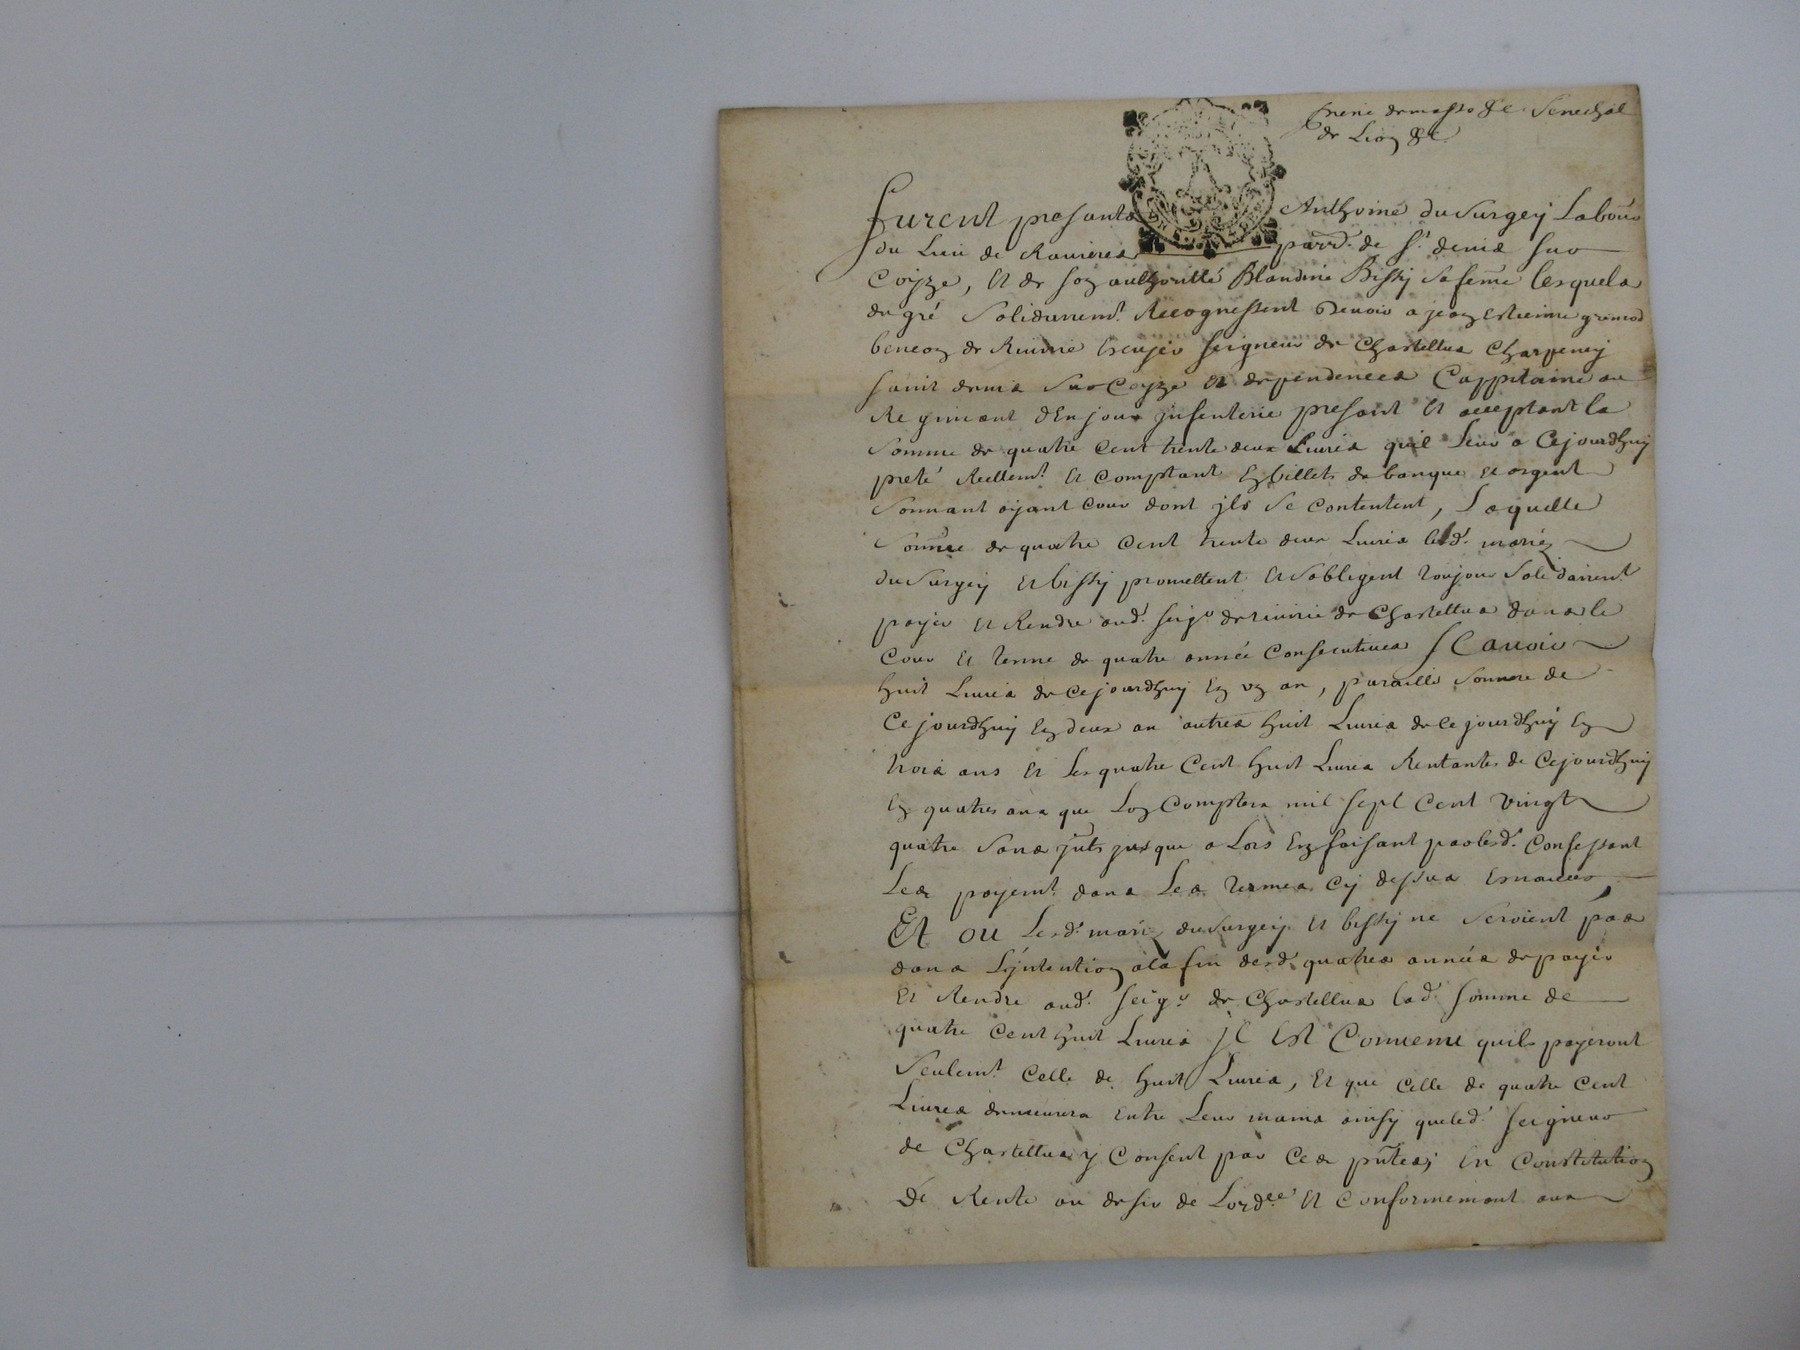 demasso &c Senechal
de Lion &c
furent presants Anthoine duSurgey Labour
du Lieu de Rauieres parr.e de S.t denis sur
Coyze, et de son authoritté Blandine Bissy safemē lesquels
de gré Solidairem.t Recognoissent Deuoir a jean estienne grimod
beneon de Riuirie escuyer seigneur de Chastellus Charpeney
saint denis sur Coyze et dependences Cappitaine au
Regimant dEnjou jnfenterie present et acceptant la
Somme de quatre cent trente deux Liures quil Leur a Cejourdhuy
preté Réellem.t et comptant En billets de banque et argent
Sonnant ayant cour dont jls se contentent, Laquelle
Somme de quatre Cent trente deux Liures lesd. mariéz
duSurgey et bissy promettent et soblegent toujour Solidairem.t
payer et Rendre aud. seig.r de riuirie de Chastellus dans le
Cour et terme de quatre année Consecutiues SCauoir
huit Liures de Cejourdhuy En un an, pareille somme de
Cejourdhuy En deux an autres huit Liures de Cejourdhuy En
trois ans et Les quatre Cent huit Liures Rentantes de Cejourdhuy
En quatres ans que Lon Comptera mil sept Cent vingt
quatre sans jnts jusque a Lors En faisant par lesd. Confessant
Les payem.t dans Les termes Cy dessus Enoncés,
Et ou Lesd. mariéz duSurgey et bissy ne seroient pas
dans L'jntention ala fin desd. quatres années de payer
et Rendre aud. seig.r de Chastellus lad. somme de
quatre Cent huit Liures jl Est Conuenu quils payeront
Seulem.t Celle de huit Liures, Et que Celle de quatre Cent
Liures demeurera Entre Leur mains ainsy queled. seigneur
de Chastellus y Consent par Ces pn̄tes; En Constitution
De Rente au desir de Lord.ce et Conformemant aux